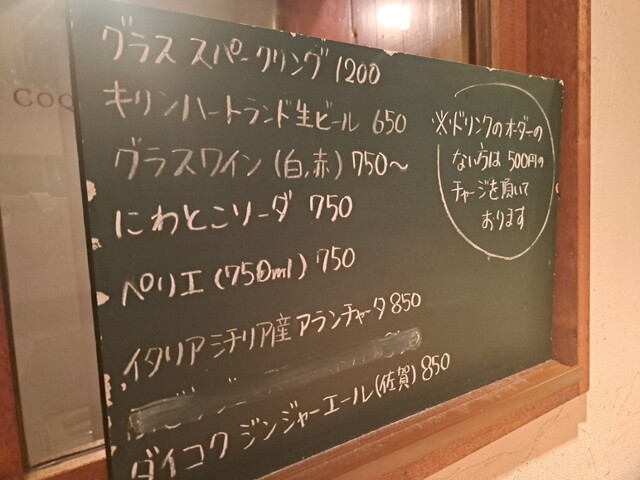 COQ
グラス スパークリング 1200
キリンハートランド生ビール 650
グラスワイン (白,赤) 750～
にわとこソーダ 750
ペリエ (750ml) 750
イタリア シチリア産 アランチャータ 850
ダイコク ジンジャーエール(佐賀) 850
※ドリンクのオーダーの
ない方は 500円の
チャージを頂いて
おります